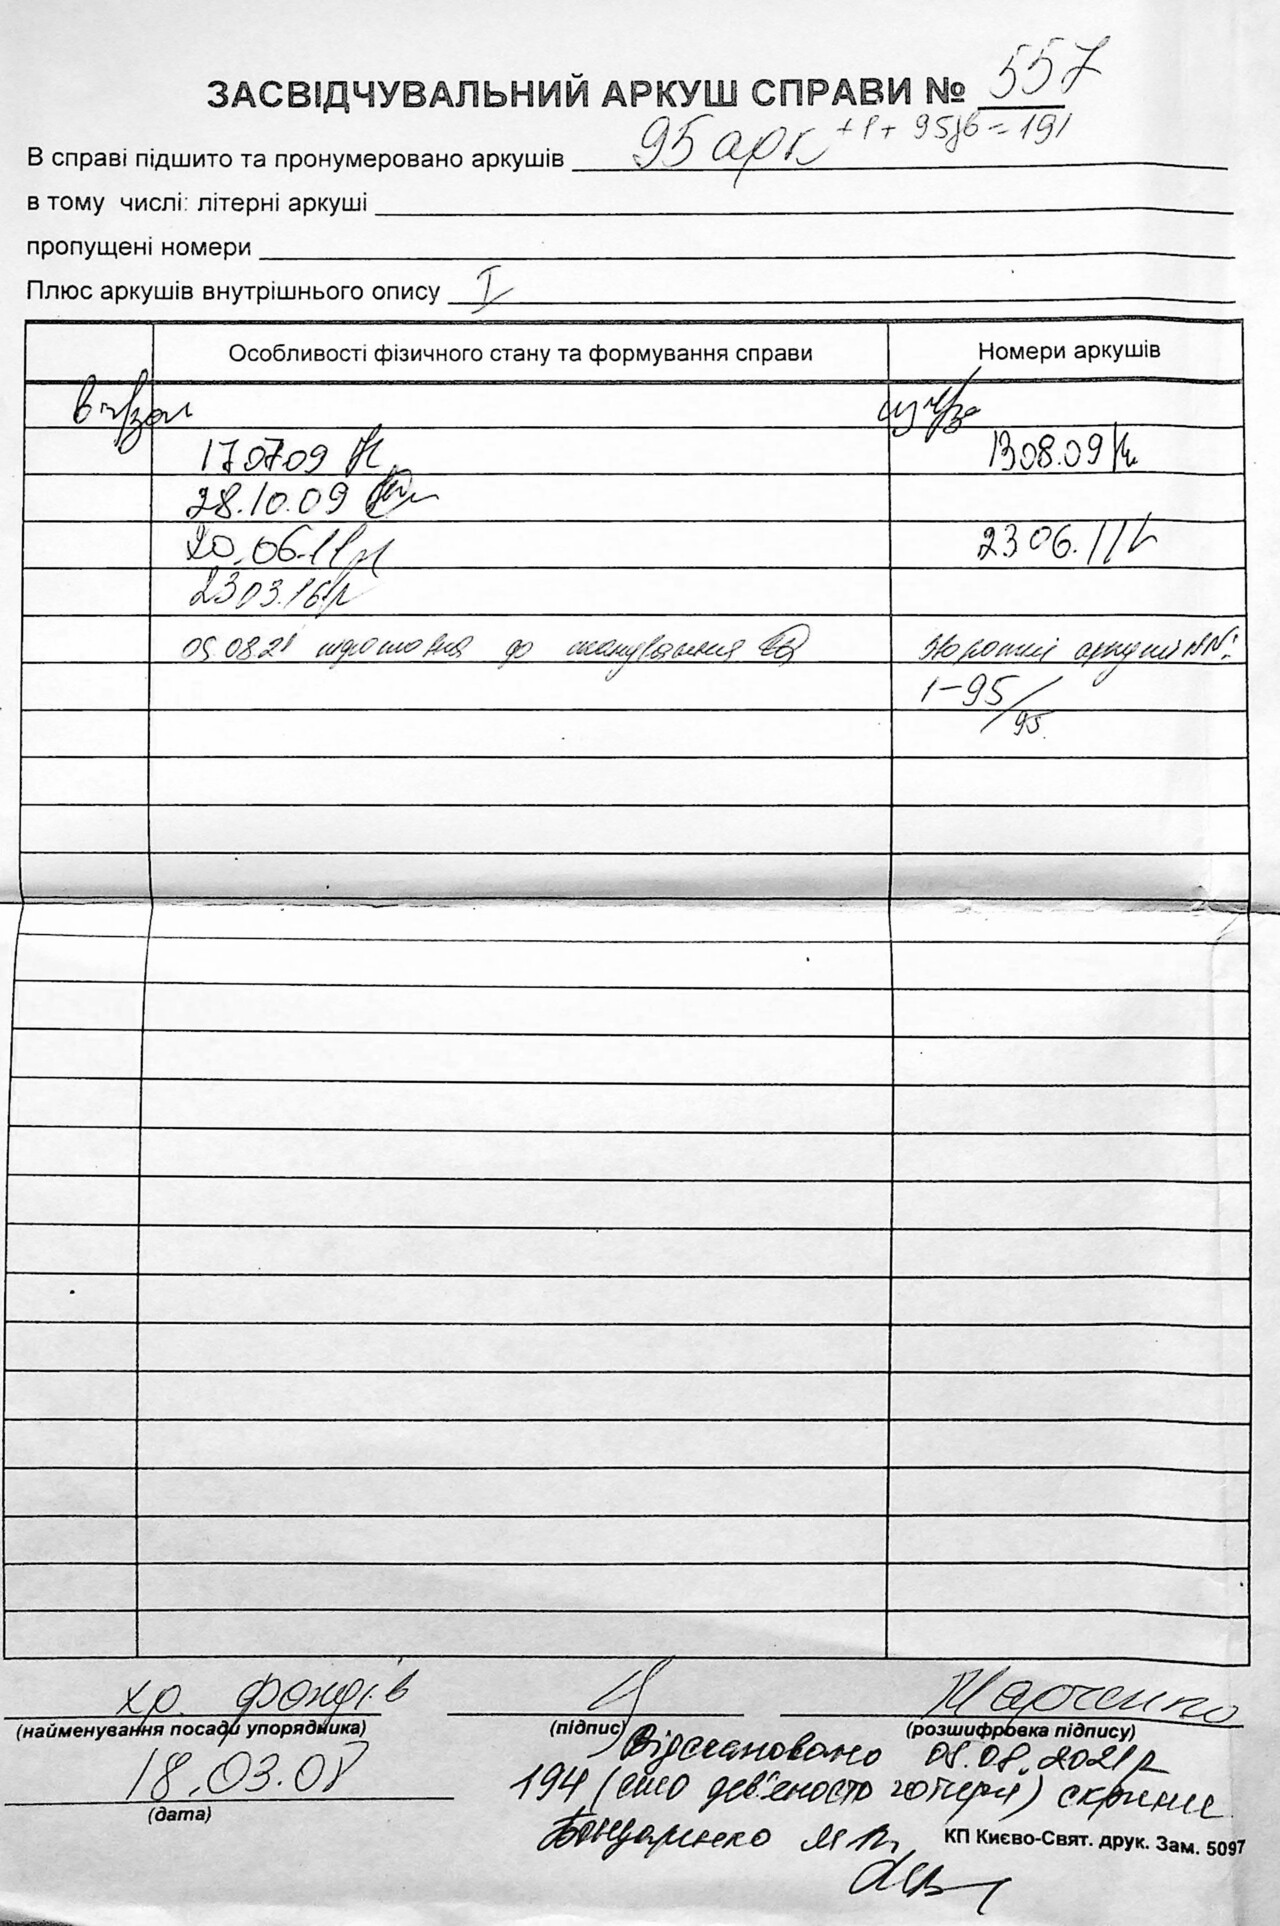 ЗАСВІДЧУВАЛЬНИЙ АРКУШ СПРАВИ № 557
В справі підшито та пронумеровано аркушів 95 арк +1+ 95зв = 191
в тому числі: літерні аркуші
пропущені номери
Плюс аркушів внутрішнього опису I
Особливості фізичного стану та формування справи Номери аркушів
17.07.09 13.08.09
28.10.09
20.06.11 23.06.11
23.03.16
05.08.21 підготовка до сканування Звороти аркушів №№:
1-95/95
хр. фондів Марченко
(найменування посади упорядника) (підпис) (розшифровка підпису)
18.03.08
(дата)
Відскановано 05.08.2021р
194 (сто дев'яносто чотири) скрини
Бондаренко М
КП Києво-Свят. друк. Зам. 5097